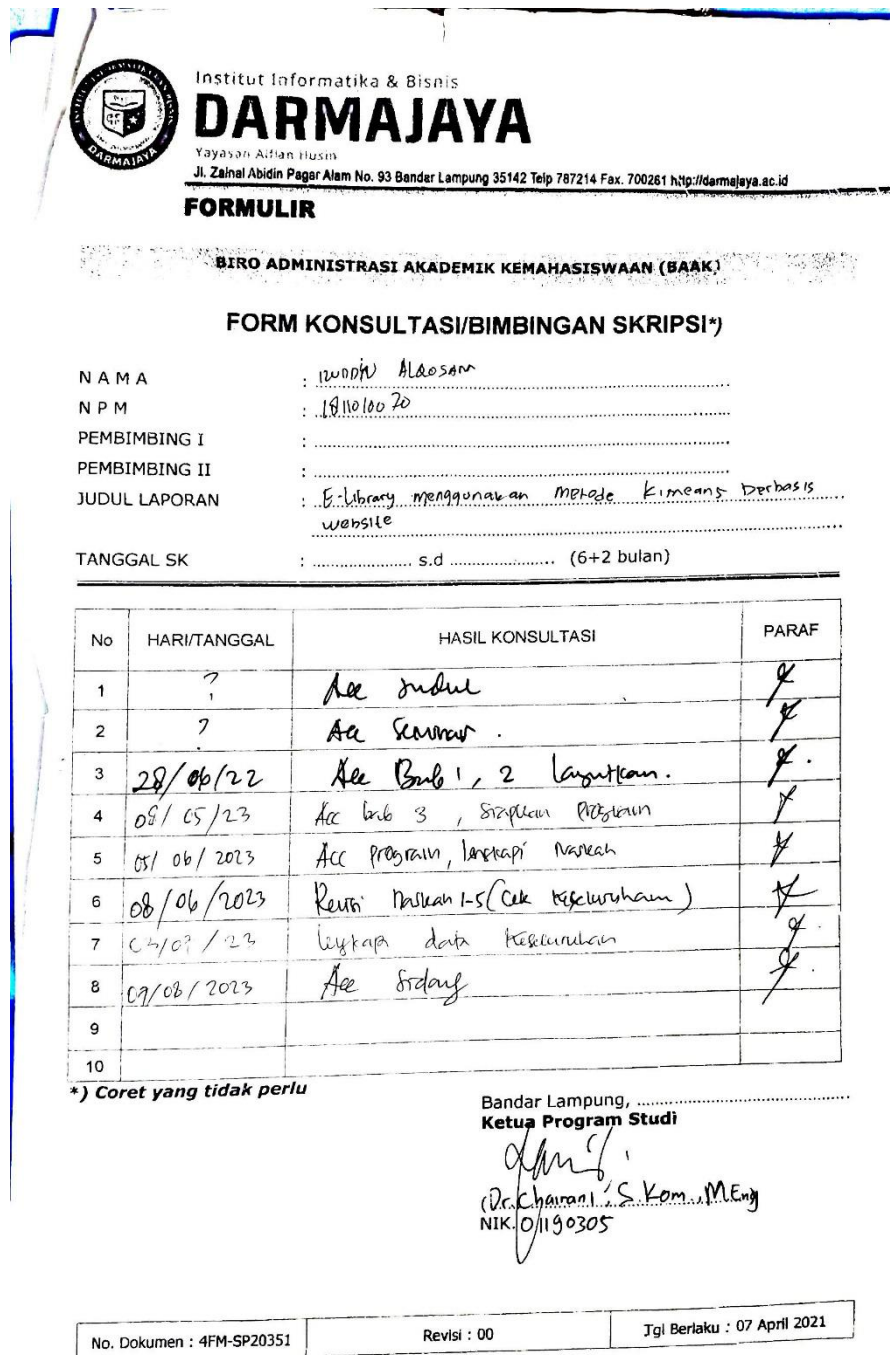 Institut Informatika & Bisnis
DARMAJAYA
Yayasan Alfian Husin
Jl. Zainal Abidin Pagar Alam No. 93 Bandar Lampung 35142 Telp 787214 Fax. 700261 http://darmajaya.ac.id
FORMULIR
BIRO ADMINISTRASI AKADEMIK KEMAHASISWAAN (BAAK)
FORM KONSULTASI/BIMBINGAN SKRIPSI*)
NAMA :
NPM : 1811010070
PEMBIMBING I :
PEMBIMBING II :
JUDUL LAPORAN : E-Library menggunakan metode Kimeans berbasis
website
TANGGAL SK : ...................... s.d ...................... (6+2 bulan)
No HARI/TANGGAL HASIL KONSULTASI PARAF
1 ? Acc Judul
2 ? Acc Seminar .
3 28/06/22 Acc Bab 1, 2 Lanjutkan.
4 /05/23 Acc bab 3 , Siapkan Program
5 05/06/2023 Acc program, lengkapi Naskah
6 08/06/2023 Revisi Naskah 1-5 (Cek Keseluruhan)
7 /23 lengkapi data Keseluruhan
8 09/08/2023 Acc Sidang
9
10
*) Coret yang tidak perlu
Bandar Lampung, ...........................................
Ketua Program Studi
(Dr. Chairani, S.Kom., M.Eng
NIK. 01190305
No. Dokumen : 4FM-SP20351 Revisi : 00 Tgl Berlaku : 07 April 2021